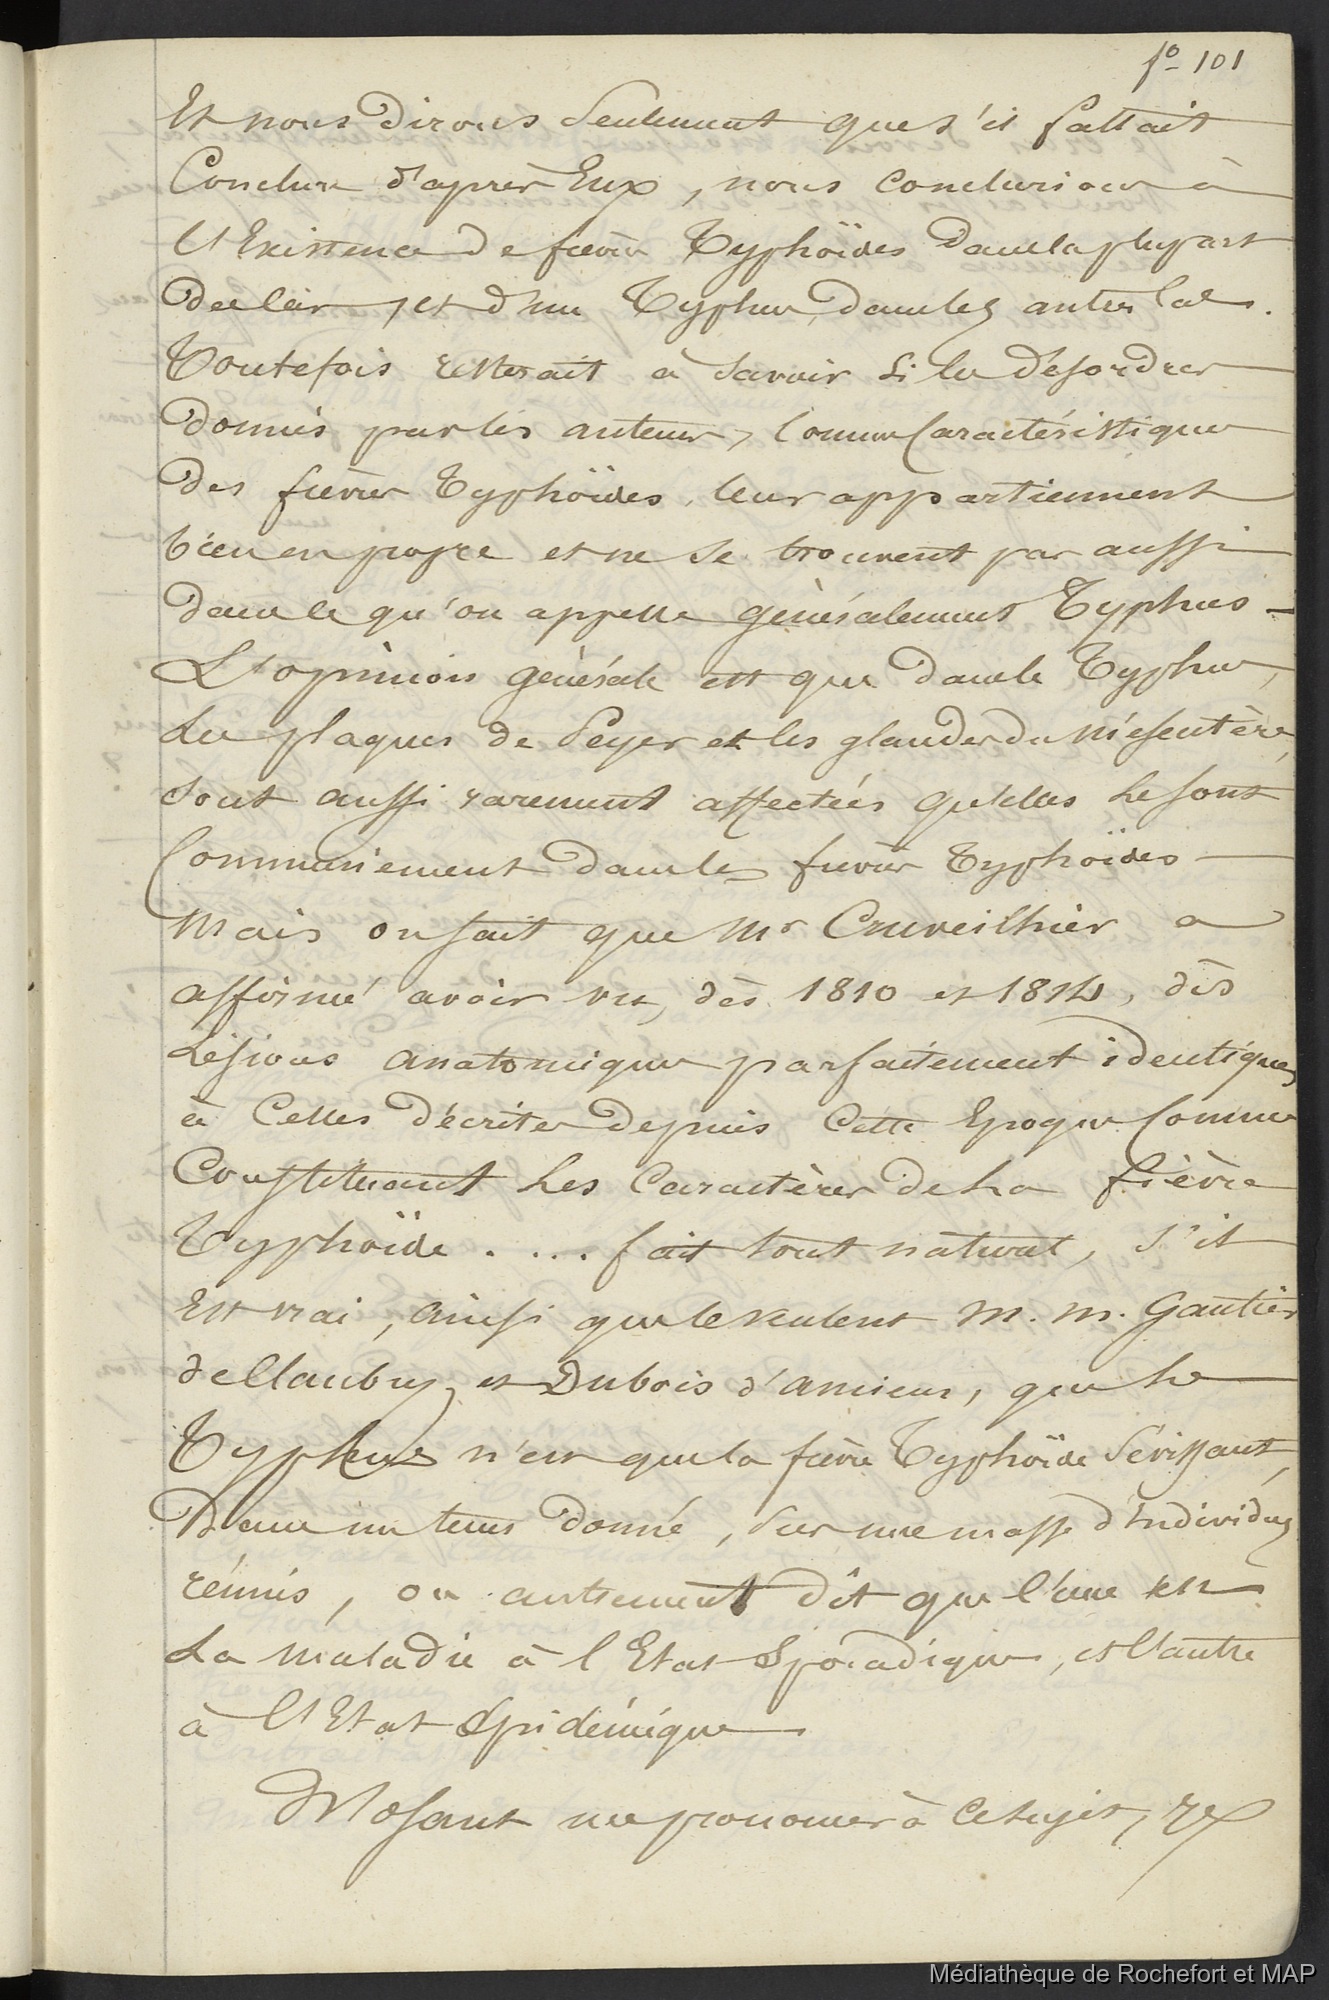 fo 101
Et nous dirons seulement que s'il fallait
Conclure d'après Eux, nous conclurions à
l'Existence de fièvres Typhoïdes dans la plupart
des cas, et d'un Typhus, dans les autres cas.
Toutefois resterait à savoir si les désordres
donnés par les auteurs, comme Caractéristiques
des fièvres Typhoïdes, leur appartiennent
bien en propre et ne se trouvent pas aussi
dans ce qu'on appelle généralement Typhus -
L'opinion générale est que dans le Typhus,
Les plaques de Peyer et les glandes du Mésentère,
sont aussi rarement affectées qu'elles le sont
Communément dans les fièvres Typhoïdes
Mais on sait que Mr Cruveilhier a
affirmé avoir vu, dès 1810 et 1814, des
Lésions anatomiques parfaitement identiques
à Celles décrites depuis Cette Epoque Comme
Constituant Les Caractères de La fièvre
Typhoïde . ... fait tout naturel, s'il
Est vrai, ainsi que le veulent M. M. Gautier
de Claubry, et Dubois d'amiens, que le
Typhus n'est que la fièvre Typhoïde Sévissant,
Dans un tems donné, sur une masse d'Individus
réunis, ou autrement dit que l'une est
La maladie à l'Etat Sporadique, et l'autre
à l'Etat Epidémique.
N'osant me prononcer à Ce sujet, je
Médiathèque de Rochefort et MAP